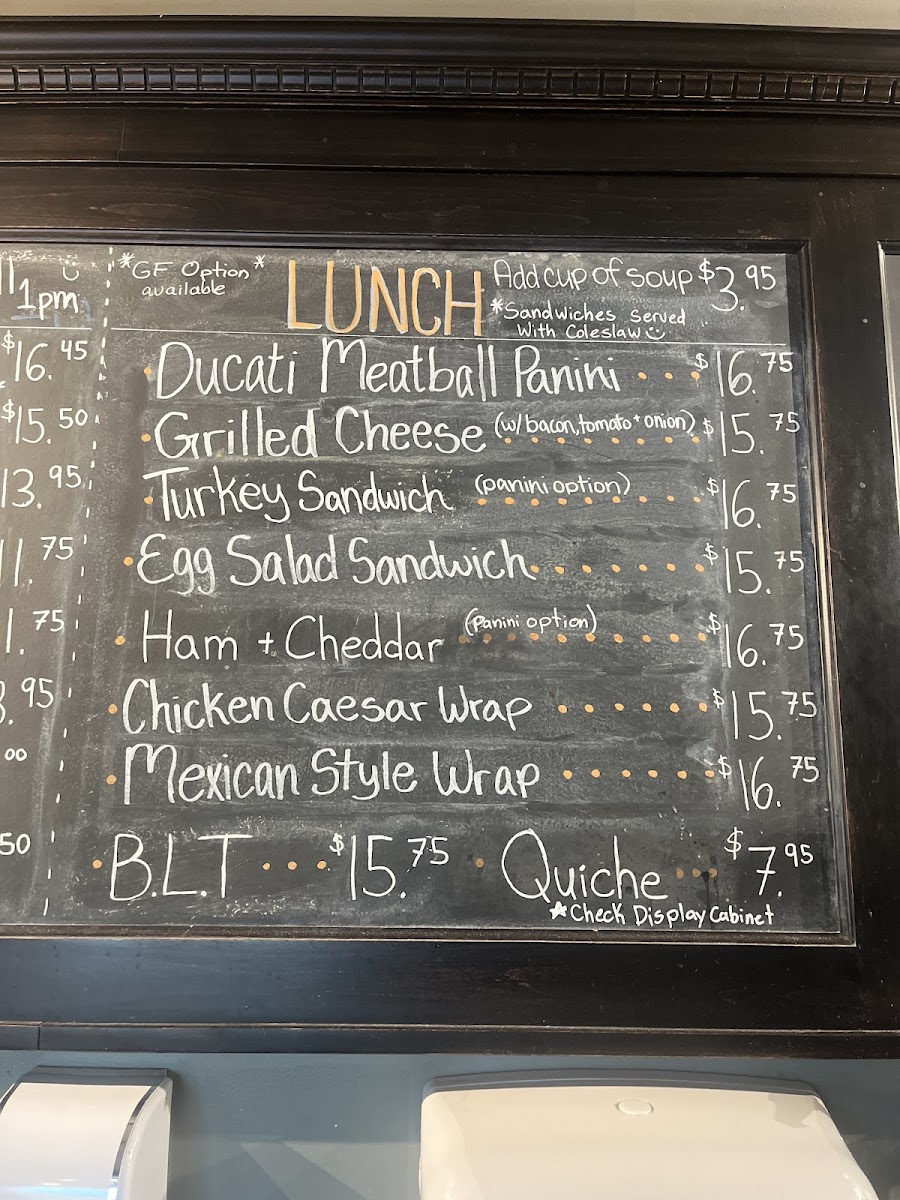 1pm
$16.45
$15.50
13.95
.75
.75
.95
.00
50
*GF Option*
available
LUNCH
Add cup of soup $3.95
*Sandwiches served
With Coleslaw
Ducati Meatball Panini $16.75
Grilled Cheese (w/ bacon, tomato + onion) $15.75
Turkey Sandwich (panini option) $16.75
Egg Salad Sandwich $15.75
Ham + Cheddar (Panini option) $16.75
Chicken Caesar Wrap $15.75
Mexican Style Wrap $16.75
B.L.T $15.75
Quiche $7.95
*Check Display Cabinet